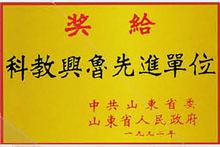 奖给
科教興魯先進單位
中共山東省委
山東省人民政府
一九九二年